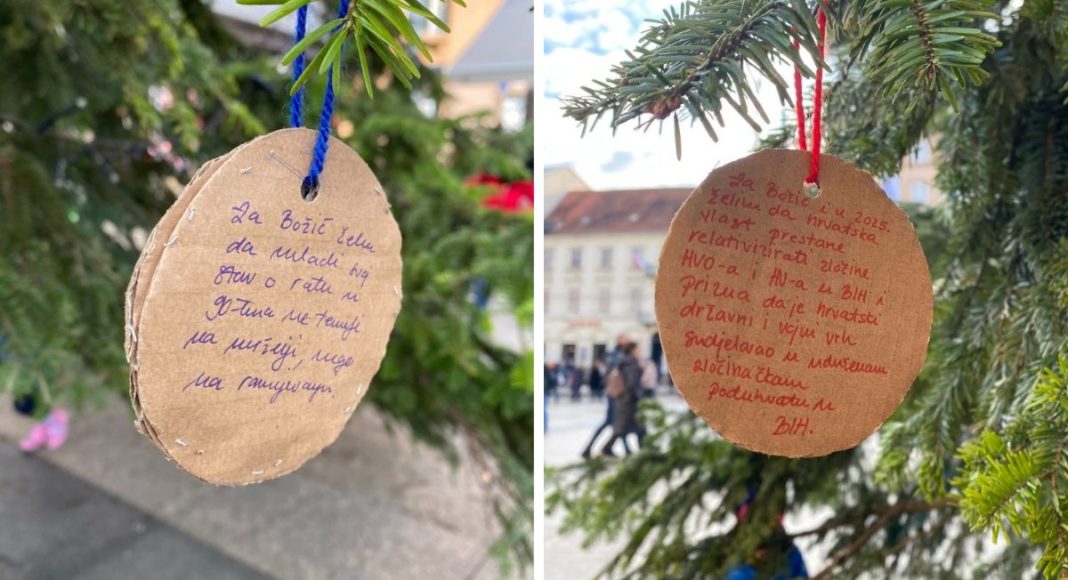 Za Božić želim
da mladi svoj
stav o ratu u
90-tima ne temelje
na mržnji, nego
na razumijevanju.
Za Božić i u 2025.
želim da hrvatska
vlast prestane
relativizirati zločine
HVO-a i HV-a u BIH i
prizna da je hrvatski
državni i vojni vrh
sudjelovao u udruženom
zločinačkom
poduhvatu u
BIH.